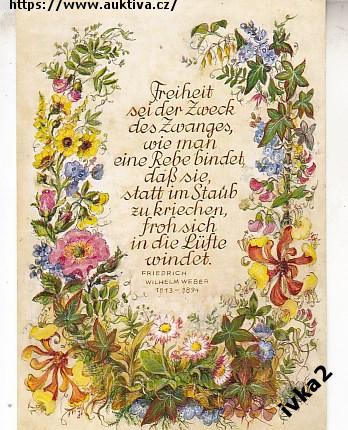 https://www.auktiva.cz/
Freiheit
sei der Zweck
des Zwanges,
wie man
eine Rebe bindet,
daß sie,
statt im Staub
zu kriechen,
froh sich
in die Lüfte
windet.
FRIEDRICH
WILHELM WEBER
1813–1894
ivka2